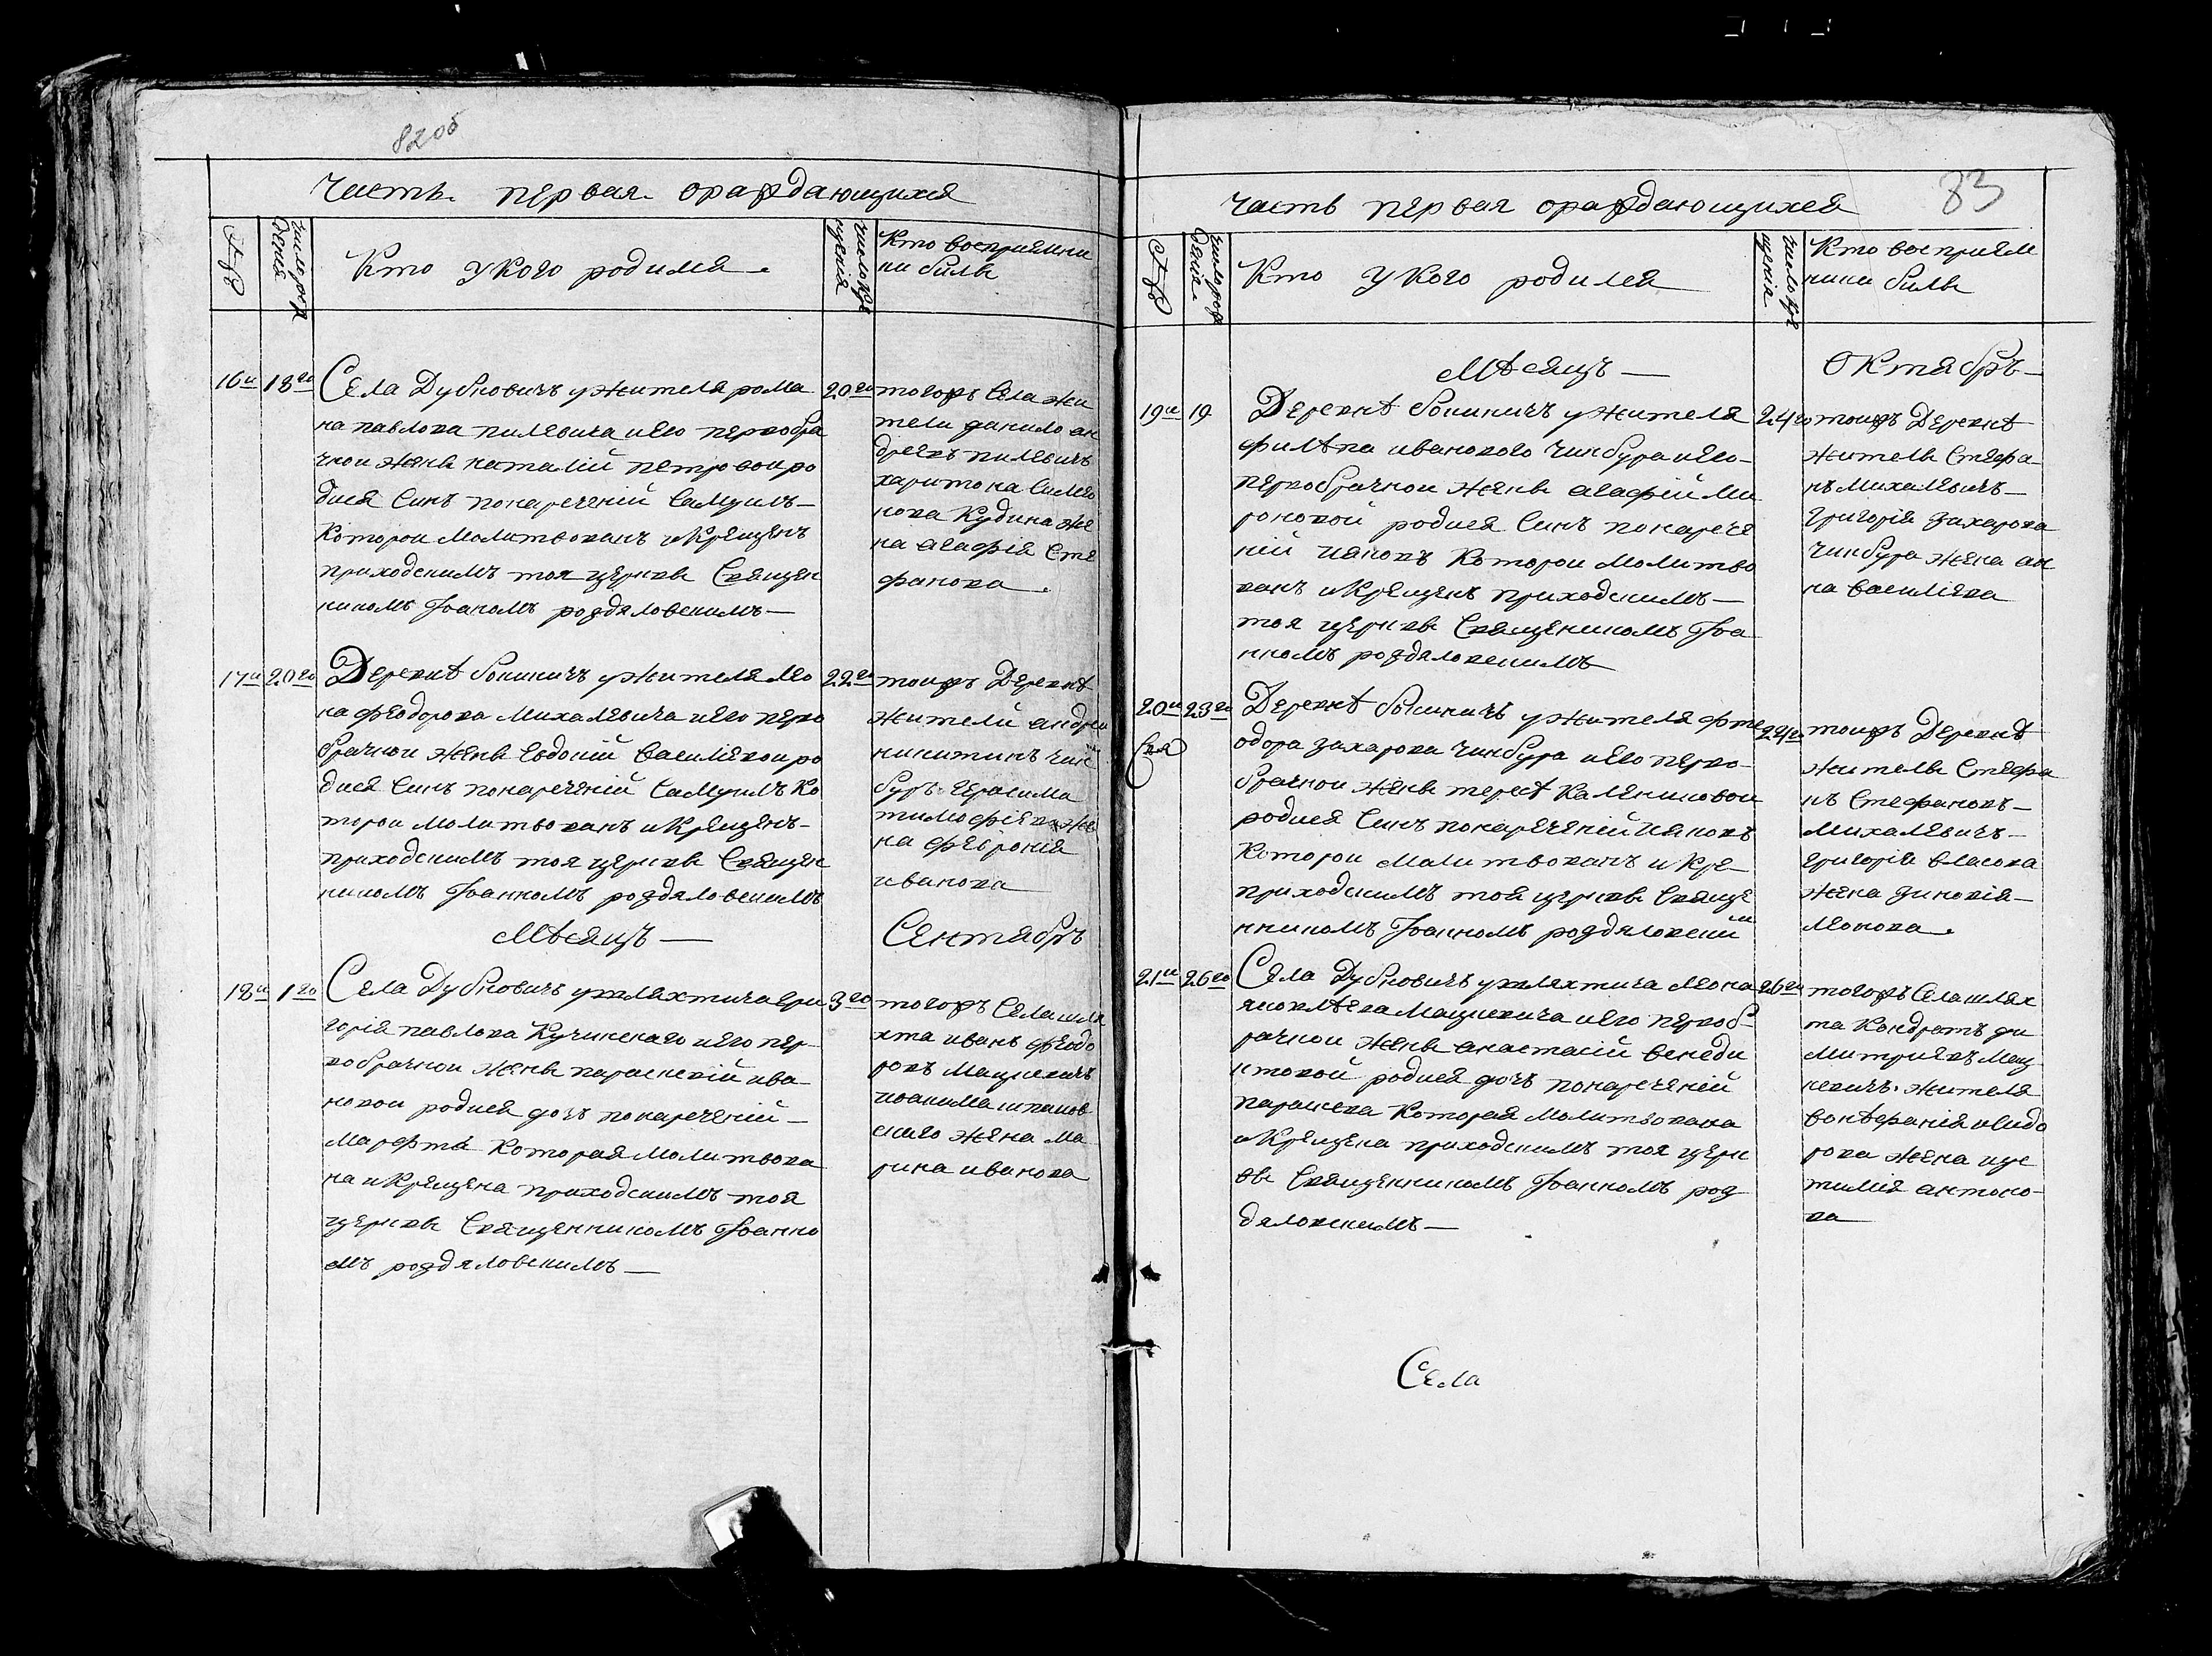 82об
часть первая ораждающихся
число рож
дения
Кто у Кого родился
число Кре
щения
Кто восприємни
ки били
16й 18го Села Дубновичъ у жителя рома
на павлова пилевича и Его первобра
чнои жени наталій петровои ро
дися Синъ понареченій Самуилъ
Которои Молитвованъ и Крещенъ
приходскимъ тоя церкви Священ
никомъ Іоаномъ роздяловскимъ
20го тогожъ Села жи
тели данило ан
дреевъ пилевичъ
харитона Симео
нова Кудина же
на агафія Сте
фанова
17й 20го Деревнѣ бокиничъ у жителя лео
на феодорова Михалевича и Его перво
брачнои жени Евдокій Василевои ро
дися Синъ понареченій Самуилъ Ко
торои Молитвованъ и Крещенъ
приходскимъ тоя церкви Священ
никомъ Іоанномъ роздяловскимъ
22го тоижъ Деревнѣ
жители андреи
никитинъ чин
буръ герасима
тимофѣева же
на февронія
иванова
Мѣсяцъ Сентябръ
18й 1го Села Дубновичъ у шляхтича гри
горія павлова Кучинского и Его пер
вобрачнои жени параскевій ива
новои родися дочъ понареченій
Марфта Которая Молитвова
на и Крещена приходскимъ тоя
церкви Священникомъ Іоанно
мъ роздяловскимъ
3го тогожъ Села шля
хта иванъ феодо
ровъ Мацкевичъ
иоакима
ского жена Ма
рина иванова
83
часть первая ораждающихся
число рож
дения
Кто у Кого родился
число Кре
щения
Кто восприєм
ники били
Мѣсяцъ Октябръ
19й 19 Деревнѣ бокиничъ у жителя
филѣпа иванового Чинбура и Его
первобрачнои жени агафій Ми
роновой родися Синъ понарече
ній иаковъ Которои Молитво
ванъ и Крещенъ приходскимъ
тоя церкви Священикомъ Іоа
нномъ роздяловскимъ
24го тоижъ Деревнѣ
жители Стефа
нъ Михалевичъ
григорія захарова
Чинбура жена ан
на Василіева
20й 23го Деревнѣ бокиничъ у жителя фте
одора захарова Чинбура и Его перво
брачнои жени тересѣ Калениковои
родися Синъ понареченій иаковъ
Которои Молитвованъ и Кре
приходскимъ тоя церкви Свяще
нникомъ Іоанномъ роздяловским
24го тоижъ Деревнѣ
жители Стефа
нъ Стефановъ
Михалевичъ
григорія власова
жена зиновія
леонова
21й 26го Села Дубновичъ у шляхтича леона
яковлѣва Мацкевича и Его первоб
рачнои жени анастасій Венеди
ктовой родися дочъ понареченій
параскева Которая Молитвована
и Крещена приходскимъ тоя церк
ви Священникомъ Іоанномъ роз
дяловскимъ
26го тогожъ Села шлях
та Кондратъ ди
митріевъ Мац
кевичъ жителя
бонѣфатія исидо
рова жена иус
тинія антоно
ва
Села